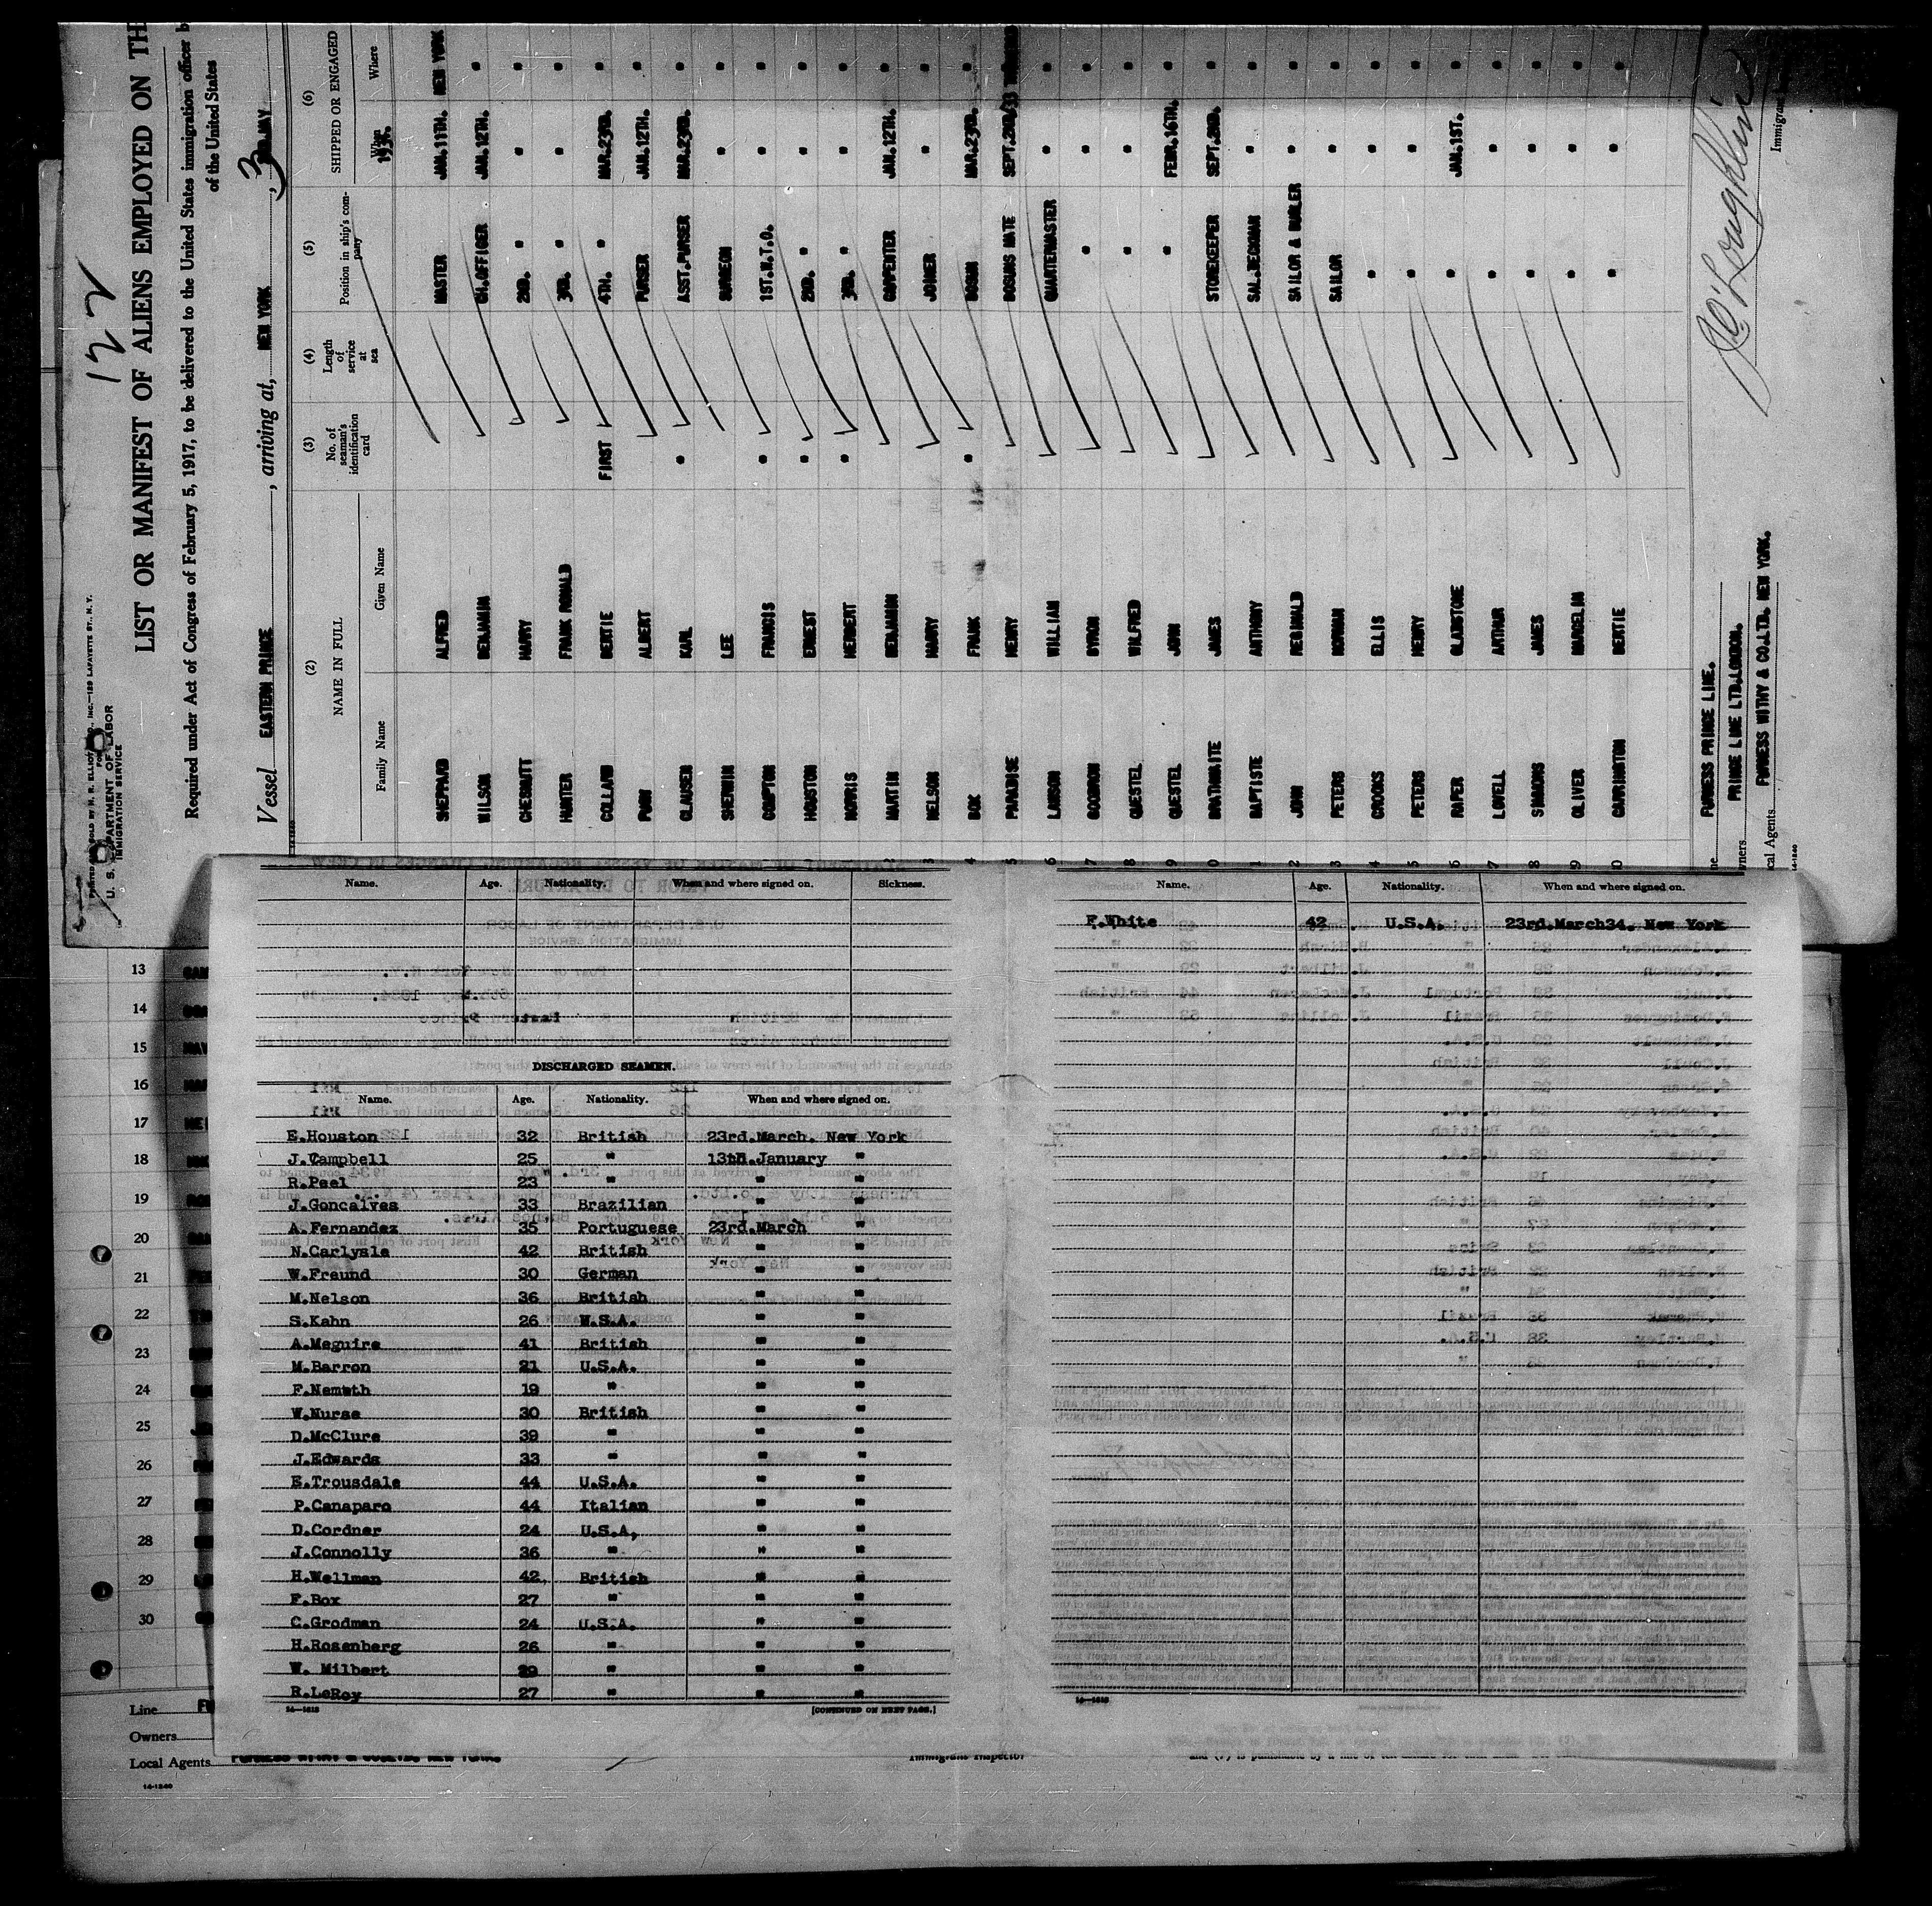 122
PRINTED AND SOLD BY H. R. ELLIOT & CO., INC.—129 LAFAYETTE ST., N. Y.
FORM
U. S. DEPARTMENT OF LABOR
IMMIGRATION SERVICE
LIST OR MANIFEST OF ALIENS EMPLOYED ON TH
Required under Act of Congress of February 5, 1917, to be delivered to the United States immigration officer b
of the United States
Vessel EASTERN PRINCE , arriving at, NEW YORK , 3 MAY
(2) NAME IN FULL (3) No. of seaman's identification card (4) Length of service at sea (5) Position in ship's company (6) SHIPPED OR ENGAGED
Family Name Given Name When Where
1934.
SHEPPARD ALFRED MASTER JAN.11TH. NEW YORK
WILSON BENJAMIN CH.OFFICER JAN.12TH. "
CHESNUTT HARRY 2ND. " " "
HUNTER FRANK RONALD 3RD. " " "
COLLARD BERTIE FIRST 4TH. " MAR.23RD. "
PUNY ALBERT PURSER JAN.12TH. "
CLAUSEN KARL " ASST.PURSER MAR.23RD. "
SHERWIN LEE SURGEON " "
COMPTON FRANCIS " 1ST.W.T.O. " "
HOUSTON ERNEST " 2ND. " " "
NORRIS HERBERT " 3RD. " " "
MARTIN BENJAMIN CARPENTER JAN.12TH. "
NELSON HARRY JOINER " "
BOX FRANK " BOSUN MAR.23RD. "
PARADISE HENRY BOSUNS MATE SEPT.2ND/33
LAWSON WILLIAM QUARTERMASTER " "
GOODRON BYRON " " "
QUESTEL WILFRED " " "
QUESTEL JOHN " FEBR.16TH. "
BRATHWAITE JAMES STOREKEEPER SEPT.2ND. "
BAPTISTE ANTHONY SAL.DECKMAN " "
JOHN REGINALD SAILOR & BUGLER " "
PETERS NORMAN SAILOR " "
CROOKS ELLIS " " "
PETERS HENRY " " "
RAPER GLADSTONE " JAN.1ST. "
LOVELL ARTHUR " " "
SIMMONS JAMES " " "
OLIVER MARCELIN " " "
CARRINGTON BERTIE " " "
ne FURNESS PRINCE LINE.
wners PRINCE LINE LTD.LONDON.
cal Agents FURNESS WITHY & CO.LTD. NEW YORK.
Immigrant
14-1240
Name. Age. Nationality. When and where signed on. Sickness.
DISCHARGED SEAMEN.
Name. Age. Nationality. When and where signed on.
E.Houston 32 British 23rd.March. New York
J.Campbell 25 " 13th.January "
R.Peel 23 " " "
J.Goncalves 33 Brazilian " "
A.Fernandez 35 Portuguese 23rd.March "
N.Carlysle 42 British " "
W.Freund 30 German " "
M.Nelson 36 British " "
S.Kahn 26 U.S.A. " "
A.Meguire 41 British " "
M.Barron 21 U.S.A. " "
F.Nemeth 19 " " "
W.Nurse 30 British " "
D.McClure 39 " " "
J.Edwards 33 " " "
E.Trousdale 44 U.S.A. " "
P.Canaparo 44 Italian " "
D.Cordner 24 U.S.A, " "
J.Connolly 36 " " "
H.Wellman 42 British " "
F.Box 27 " " "
C.Grodman 24 U.S.A. " "
H.Rosenberg 26 " " "
W. Milbert 29 " " "
R.LeRoy 27 " " "
14—1618 [CONTINUED ON NEXT PAGE.]
Name. Age. Nationality. When and where signed on.
F.White 42 U.S.A. 23rd.March34. New York
14—1618
13
14
15
16
17
18
19
20
21
22
23
24
25
26
27
28
29
30
Line
Owners
Local Agents FURNESS WITHY & CO.LTD. NEW YORK.
Immigrant Inspector
14-1240